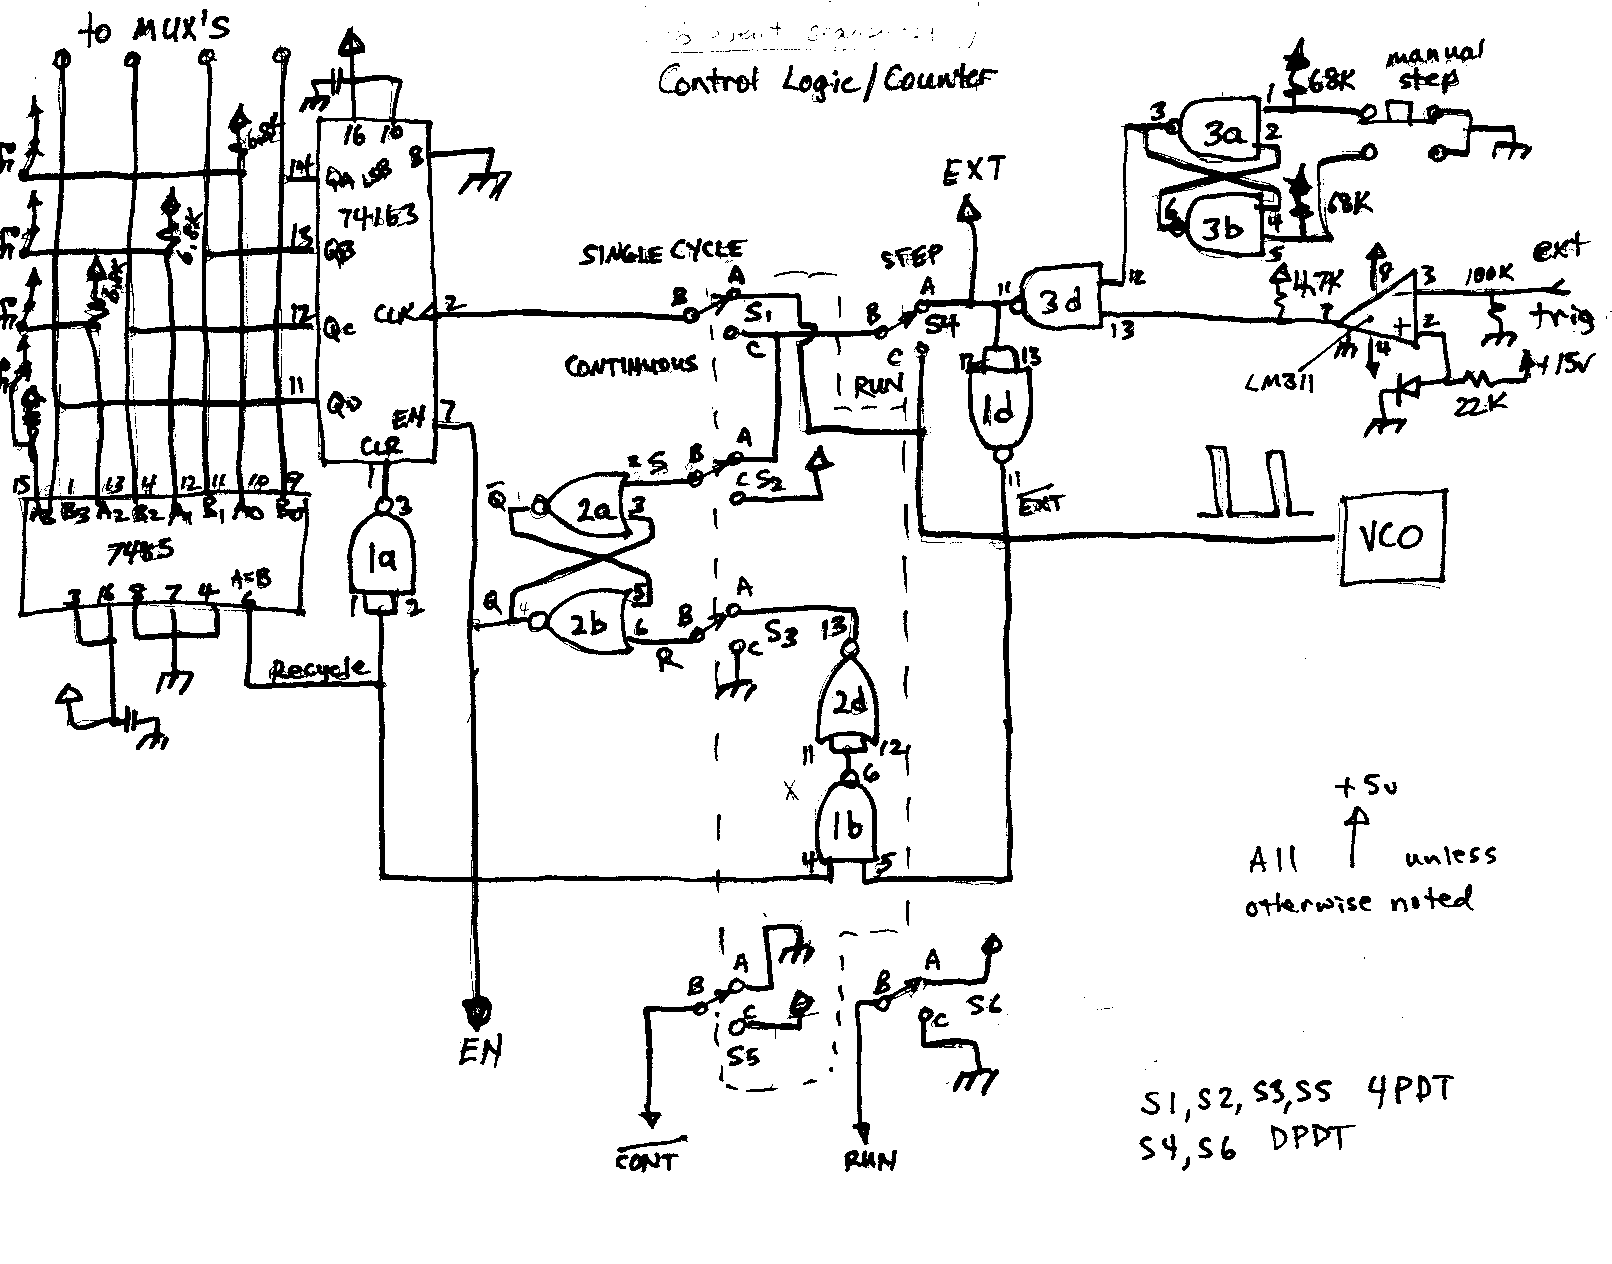 to MUX'S
Control Logic/Counter
manual
step
68K
3
3a
1
2
6
3b
4
5
68K
16
10
8
14
QA LSB
74163
13
QB
6.8K
12
QC
CLK
2
11
QD
EN
7
CLR
1
6.8K
EXT
SINGLE CYCLE
STEP
A
B
S1
C
CONTINUOUS
A
B
S4
C
RUN
11
3d
12
13
4.7K
8
7
3
2
4
100K
ext
trig
LM311
+15V
22K
12
13
1d
11
EXT
VCO
15
1
13
4
12
11
10
9
A3
B3
A2
B2
A1
B1
A0
B0
7485
3
16
8
7
4
A=B
6
3
1a
1
2
Recycle
Q
2a
2
S
3
B
A
C
S2
Q
4
2b
5
6
R
B
A
C
S3
13
2d
11
12
6
X
1b
4
5
+5v
All
unless
otherwise noted
EN
B
A
C
S5
CONT
B
A
C
S6
RUN
S1, S2, S3, S5 4PDT
S4, S6 DPDT